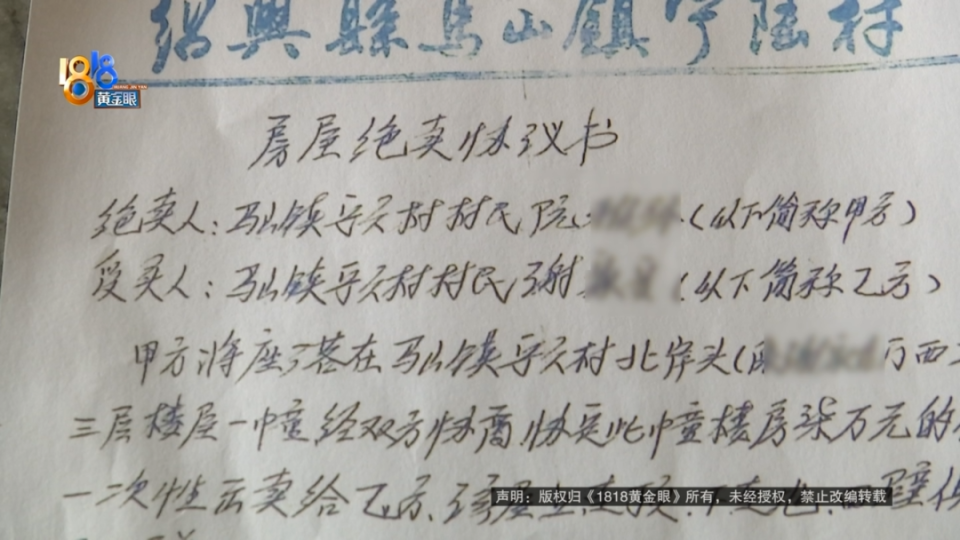 绍興縣馬山鎮宁陆村
1818
黄金眼
房屋绝卖协议书
绝卖人：马山镇 村村民阮 （以下简称甲方）
受买人：马山镇 村村民谢 （以下简称乙方）
甲方将座落在马山镇 村北岸头（ 西
三层楼屋一幢经双方协商，协定此幢楼房柒万元的
一次性出卖给乙方，该屋上连顶，下连地，四壁俱
声明：版权归《1818黄金眼》所有，未经授权，禁止改编转载